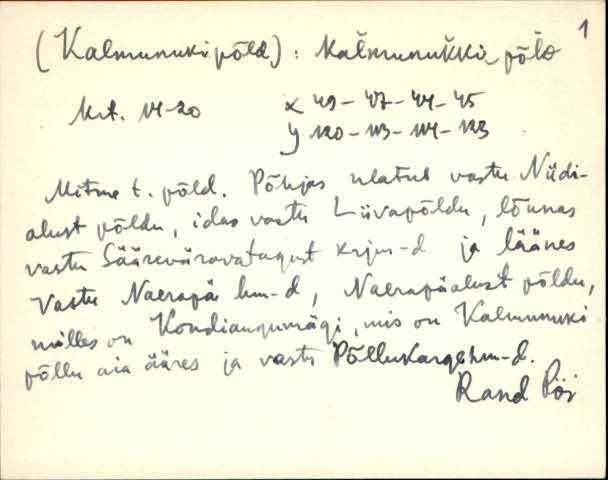 1
(Kalmunuki põld): kalmunukki põlo
Krt. VI-20 x 49-47-44-45
y 120-113-114-123
Mitme t. põld. Põhjas ulatub vastu Niidi-
alust põldu, idas vastu Liivapõldu, lõunas
vastu Sääreväravatagust krjm-d ja läänes
vastu Naerapä hm-d, Naerapäalust põldu,
milles on Kondiaugumägi, mis on Kalmunuki
põllu aia ääres ja vastu Põllukargehm-d.
Rand Pöi